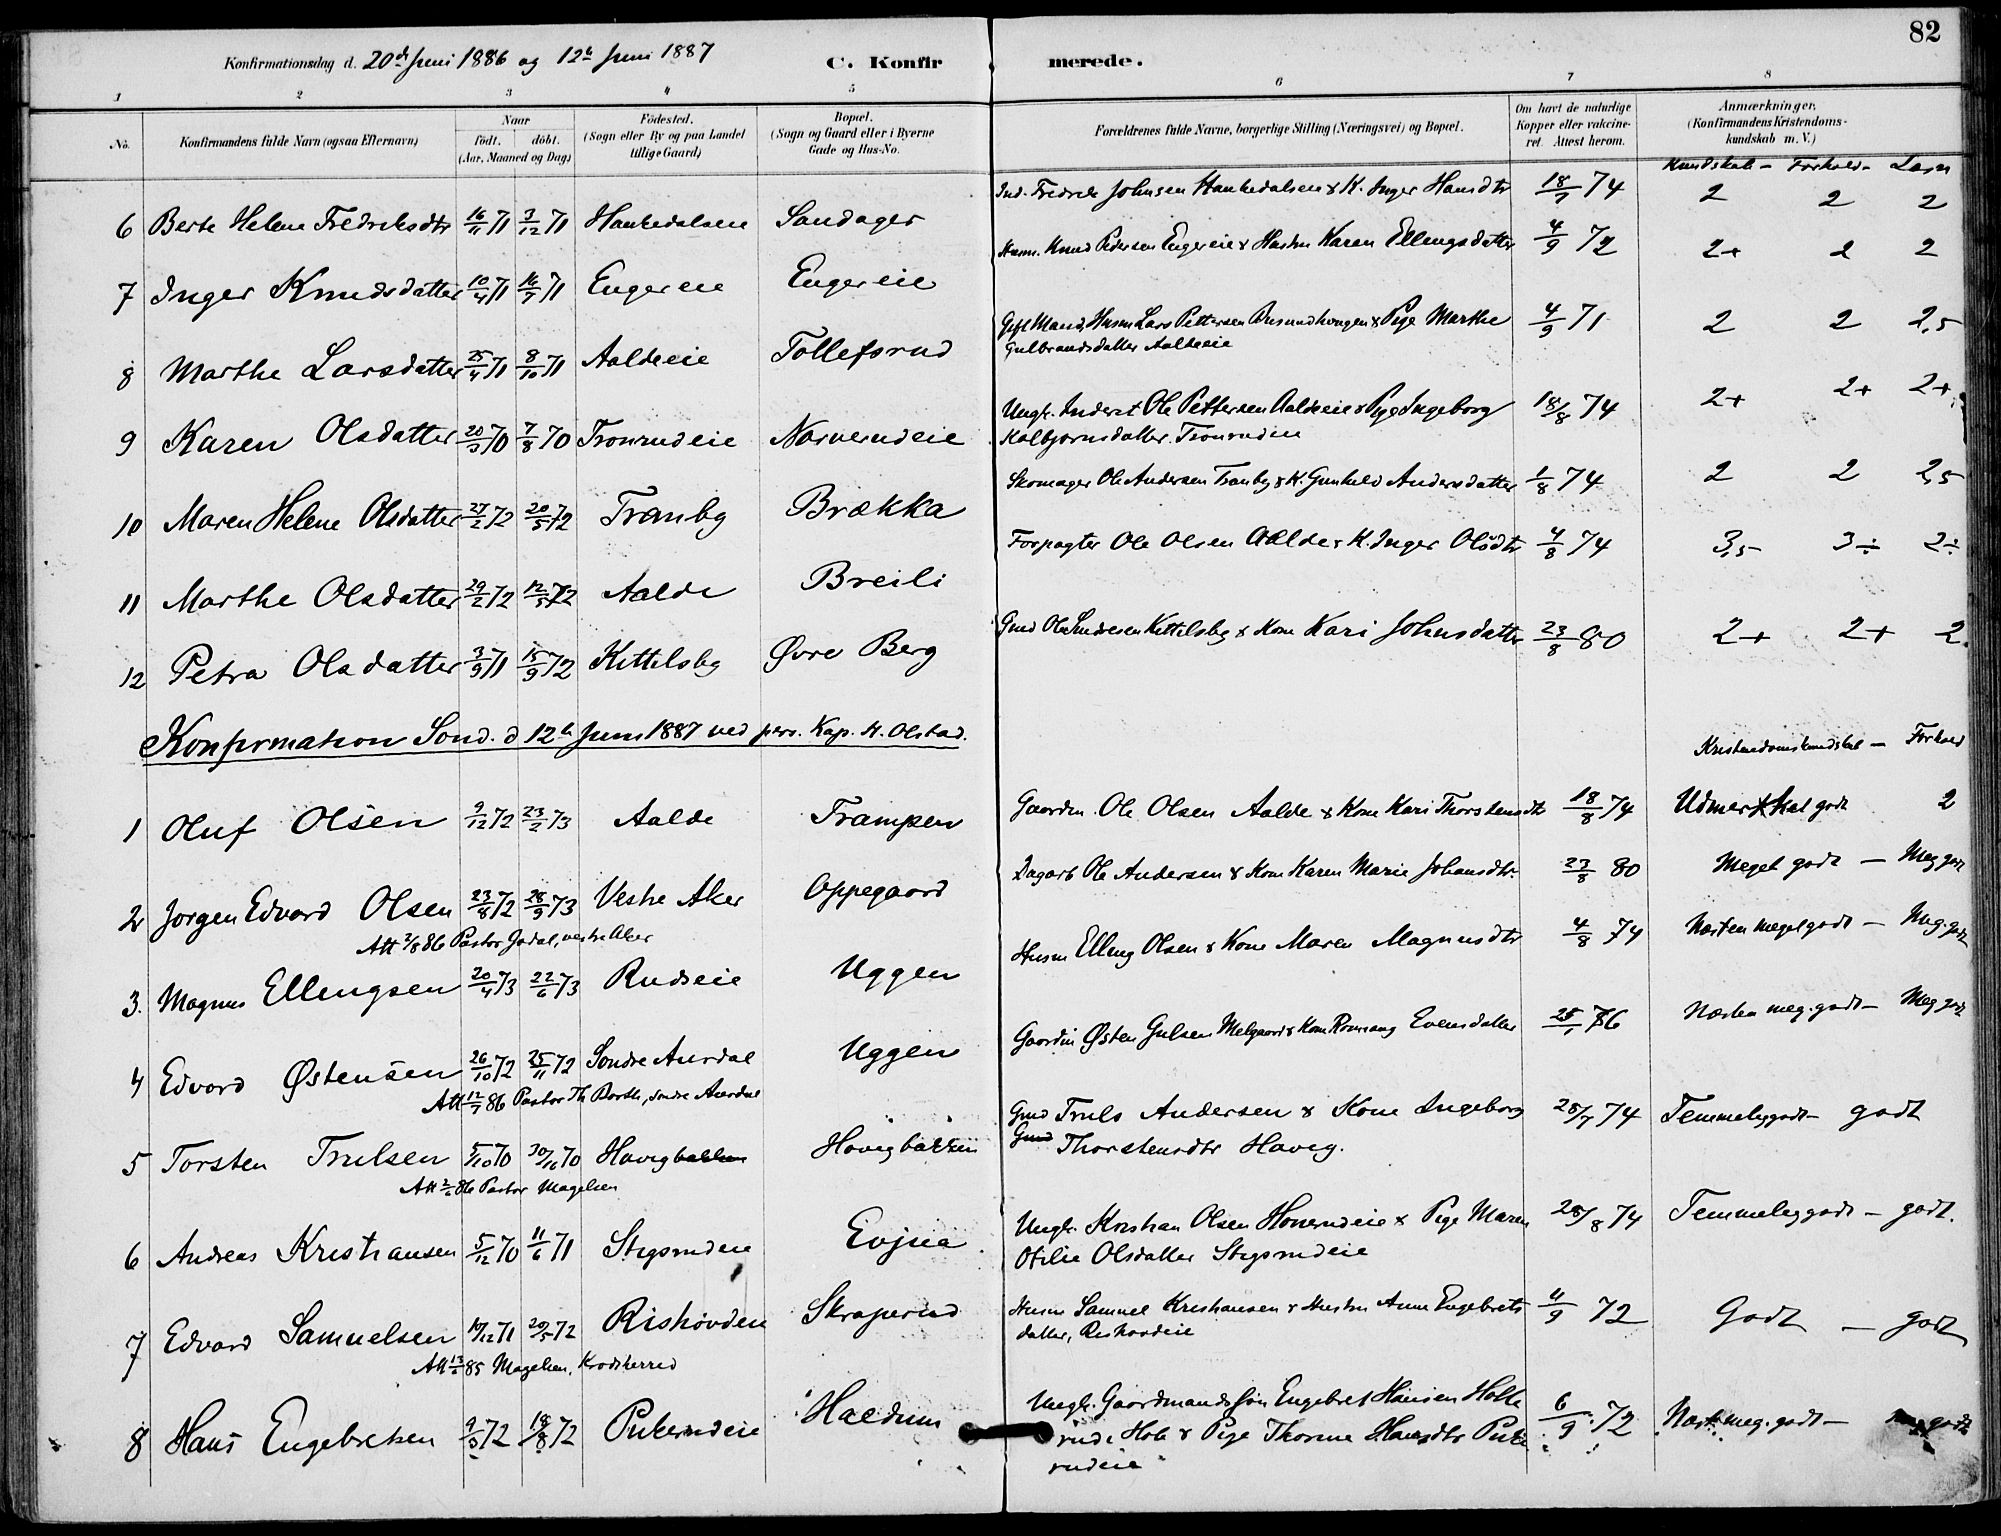 82
Konfirmationsdag d. 20de Juni 1886 og 12te Juni 1887
C. Konfirmerede.
1 2 3 4 5 6 7 8
No. Konfirmandens fulde Navn (ogsaa Efternavn) Naar født. døbt. (Aar, Maaned og Dag) Födested. (Sogn eller By og paa Landet tillige Gaard) Bopæl. (Sogn og Gaard eller i Byerne Gade og Hus-No. Forældrenes fulde Navne, borgerlige Stilling (Næringsvei) og Bopæl. Om havt de naturlige Kopper eller vakcineret. Attest herom. Anmærkninger, (Konfirmandens Kristendomskundskab m. V.)
Kundskab - Forhold - Læsn
6 Berte Helene Fredriksdtr 16/11 71 3/12 71 Hankedalseie Sandager Ind. Fredrik Johnsen Hankedalseie & K. Inger Hansdtr 18/7 74 2 2 2
7 Inger Knudsdatter 10/4 71 16/7 71 Engereie Engereie Husm. Knud Pedersen Engereie & Hustru Karen Ellingsdatter 4/9 72 2+ 2 2
8 Marthe Larsdatter 25/4 71 8/10 71 Aaldeeie Tollefsrud Gift Mand, Husm Lars Pettersen & Pige Marthe
Gulbrandsdatter Aaldeeie 4/9 71 2 2 2,5
9 Karen Olsdatter 20/3 70 7/8 70 Tronrudeie Narverudeie Ungk. Inderst Ole Pettersen Aaldeeie & Pige Ingeborg
Kolbjørnsdatter Tronrudeie 18/8 74 2+ 2+ 2+
10 Maren Helene Olsdatter 27/2 72 20/5 72 Tranby Brækka Skomager Ole Andersen Tranby & K. Gunhild Andersdatter 1/8 74 2 2 2,5
11 Marthe Olsdatter 29/2 72 12/5 72 Aalde Breili Forpagter Ole Olsen Aalde & K. Inger Olsdtr 4/8 74 3,5 3÷ 2÷
12 Petra Olsdatter 3/9 71 15/9 72 Kittelsby Øvre Berg Gmd Ole Kittelsby & Kone Kari Johnsdatter 23/8 80 2+ 2+ 2
Konfirmation Sønd. d 12te Juni 1887 ved pers. Kap. H. Olstad.
Kristendomskundskab - Forhold
1 Oluf Olsen 9/12 72 23/2 73 Aalde Trampen Gaardm. Ole Olsen Aalde & Kone Kari Thorstensdtr 18/8 74 Udmerket godt 2
2 Jørgen Edvard Olsen 23/8 72 28/9 73 Vestre Aker Oppegaard Dagarb Ole Andersen & Kone Karen Marie Johansdtr 23/8 80 Meget godt - Meg godt
Att 2/8 86 Pastor Jødal, vestre Aker
3. Magnus Ellingsen 20/4 73 22/6 73 Rudseie Uggen Husm Elling Olsen & Kone Maren Magnusdtr 4/8 74 Næsten meget godt - Meg. godt
4 Edvard Østensen 26/10 72 25/11 72 Søndre Aurdal Uggen Gaardm Østen Gulsen Melgaard & Kone Rønnaug Evensdatter 25/1 76 Næsten meg. godt - Meg godt
Att 12/7 86 Pastor Th Barth, søndre Aurdal
5 Torsten Trulsen 5/10 70 30/10 70 Høvigbakken Høvigbakken Gmd Truls Andersen & Kone Ingeborg
Gmd Thorstensdtr Høvig. 28/7 74 Temmelig godt - godt
Att 2/6 86 Pastor Magelsen
6 Andreas Kristiansen 5/12 70 11/6 71 Stegsrudeie Evjua Ungk. Kristian Olsen Honerudeie & Pige Maren
Otilie Olsdatter Stegsrudeie 28/8 74 Temmelig godt - godt.
7 Edvard Samuelsen 14/12 71 20/5 72 Rishøvdeie Skraperud Husm Samuel Kristiansen & Hustru Anne Engebrets
datter, Rishovdeie 4/9 72 Godt - godt
Att 13/6 85 Magelsen, Krødsherred
8 Hans Engebretsen 9/3 72 18/8 72 Pukerudeie Haldum Ungk. Gaardmandssøn Engebret Hansen Holte
rud i Hole & Pige Thorine Hansdtr Puke
rudeie 6/9 72 Næst. meg. godt - meg godt